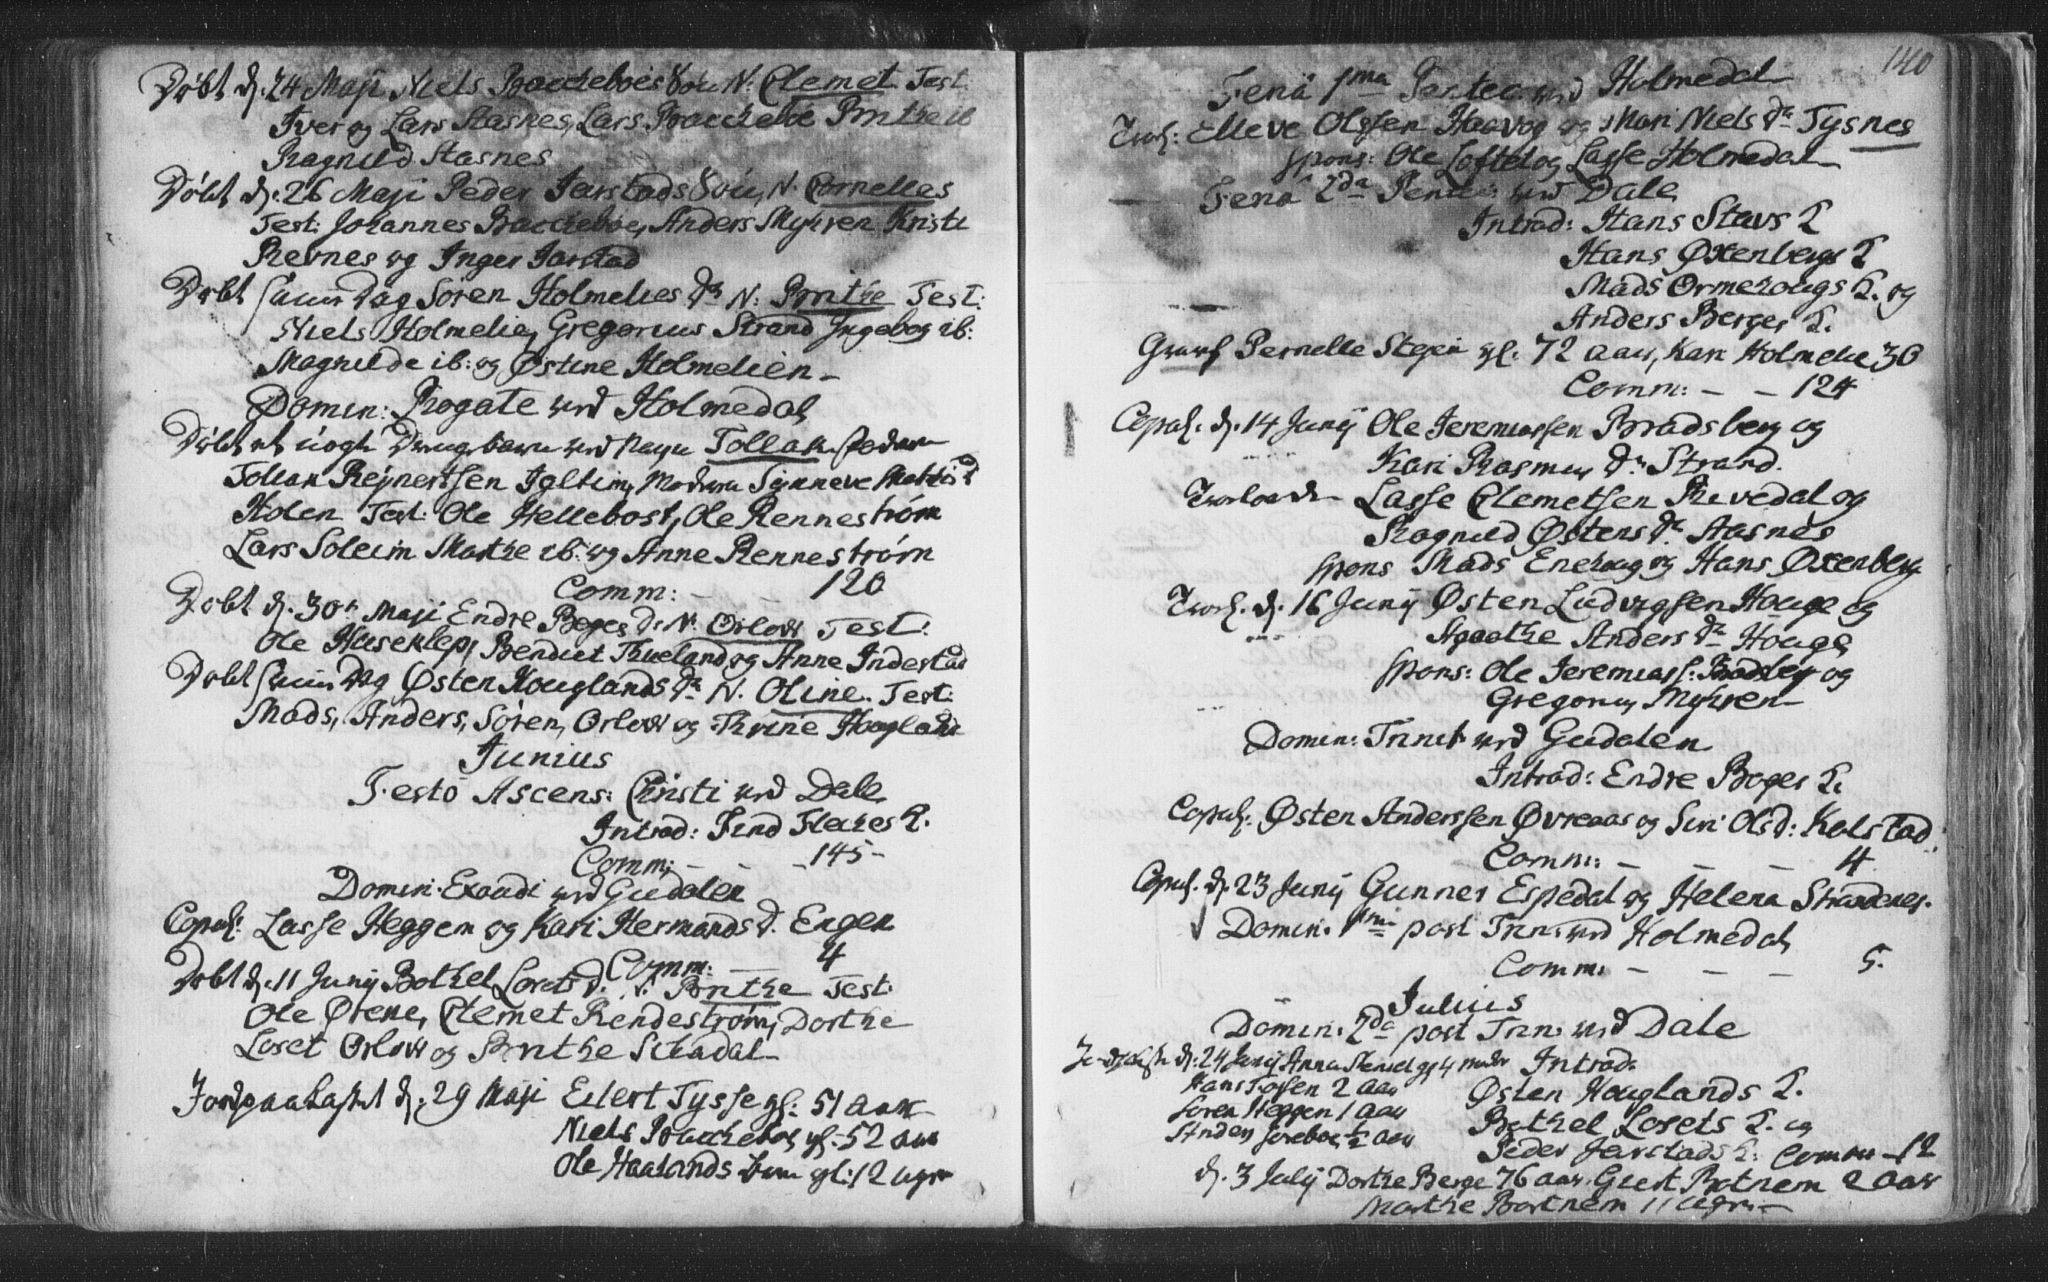 Døbt d. 24 Maji Niels Backeboes Søn N. Clemet Test:
Iver og Lars Aasnes, Lars Backeboe Brithe ib
Ragnild Aasnes
Døbt d. 26 Maji Peder Jarstads Søn, N. Cornelles
Test: Johannes Backeboe, Anders Myhren Kristi
Revnes og Inger Jarstad
Døbt samme Dag Søren Holmelies Dr N: Brithe Test:
Niels Holmelie, Gregorius Strand Ingebog ib:
Magnilde ib: og Østine Holmelien
Domin: Rogate ved Holmedal
Døbt et uægte Drengebarn ved Nayn Tollak
Tollak Rejnertsen Moderen Synneve
Holen Test: Ole Hellebost, Ole Rennestrøm
Lars Soleim Marthe ib: og Anne Rennestrøm
Comm: - - 120
Døbt d. 30te Maji Endre Boges Dr N. Orlow Test:
Ole Huseklep, Bendict Thueland og Anne Indestad
Døbt samme Dag Østen Houglands Dr N. Oline. Test:
Mads, Anders, Søren, Orlow og Thrine Hougland
Junius
Festo Ascens: Christi ved Dale
Introd: Find Fleches K.
Comm: - - - 145 -
Domin: Exaudi ved Gudalen
Copul: Lasse Heggem og Kari Hermands d. Engen
Comm: - 4
Døbt d. 11 Junij Bothel Losets d. N. Brithe Test:
Ole Ørene, Clemet Rendestrøm, Dorthe
Loset Orlow og Brithe Schadal
Jordpaakastet d. 29 Maji Eilert Tysse gl. 51 aar
Niels Backeboe gl. 52 aar
Ole Haalands barn gl: 12 uger
140
Feria 1ma Pentec: ved Holmedal
Trol: Elleve Olssen Haavog og Mari Niels Dr Tysnes
spons: Ole Loftel og Lasse Holmedal
Feria 2da Pent: ved Dale
Introd: Hans Stavs K
Hans Øxenbergs K
Mads Ormehougs K. og
Anders Berges K.
Gravf Pernelle Stejen gl. 72 aar, Kari Holmelie 30
Comm: - - 124
Copul. d. 14 Junij Ole Jeremiassen Bradsberg og
Kari Rasmus Dr Strand.
Trolovede Lasse Clemetsen Revedal og
Ragnild Østens Dr Aasnes
spons Mads Enehoug og Hans Øxenberg
Trol. d. 16 Junij Østen Ludvigsen Houge og
Agathe Anders Dr Houge
spons: Ole Jeremiass: og
Gregorius Myhren
Domin: Trinit ved Gudalen
Introd: Endre Boges K.
Copul. Østen Anderssen Øvreaas og Siri Ols d: Kolstad
Comm: - - - 4
Copul. d. 23 Junij Gunner Espedal og Helena Strandenes.
Domin. 1mi post Trin: ved Holmedal
Comm: - - - 5.
Julius
Domin. 2da post Trin: ved Dale
d. 24 Junij Anna gl 4 Introd:
Hans Tossen 2 aar Østen Houglands K.
Søren Heggen 1 aar Bothel Losets K. og
1/2 aar Peder Jarstads K. Comm - 12
d. 3 Julij Dorthe Berge 76 aar. Giert Botnem 2 aar
Marthe Bortnem 11 Uger